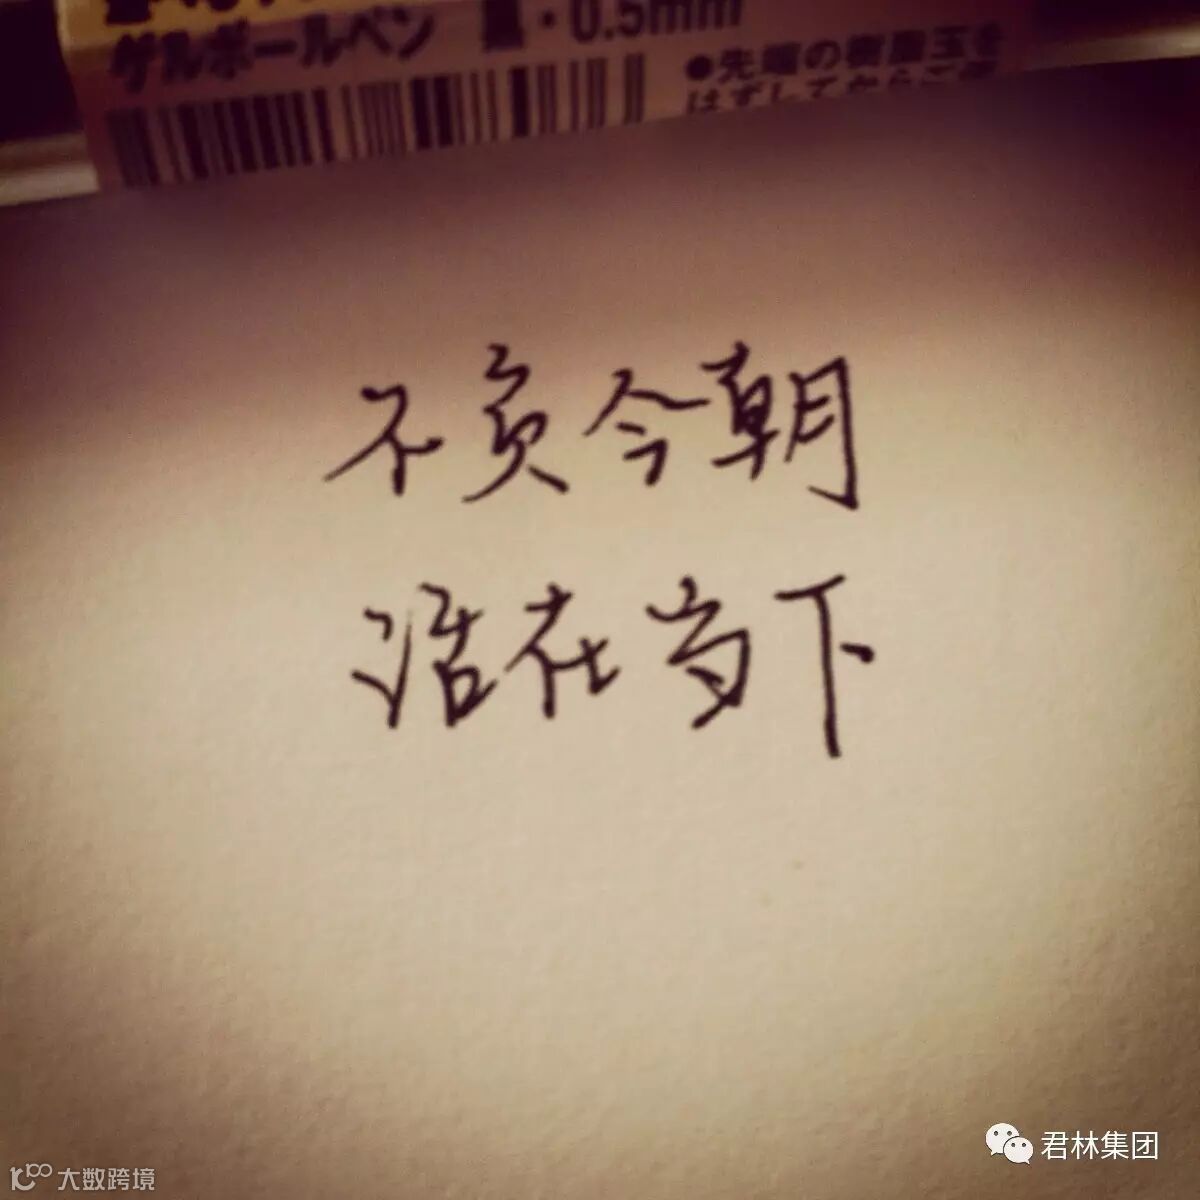 ゲルボールペン 黒・0.5mm
●先端の樹脂玉を
はずしてからご使
不负今朝
活在当下
君林集团
大数跨境